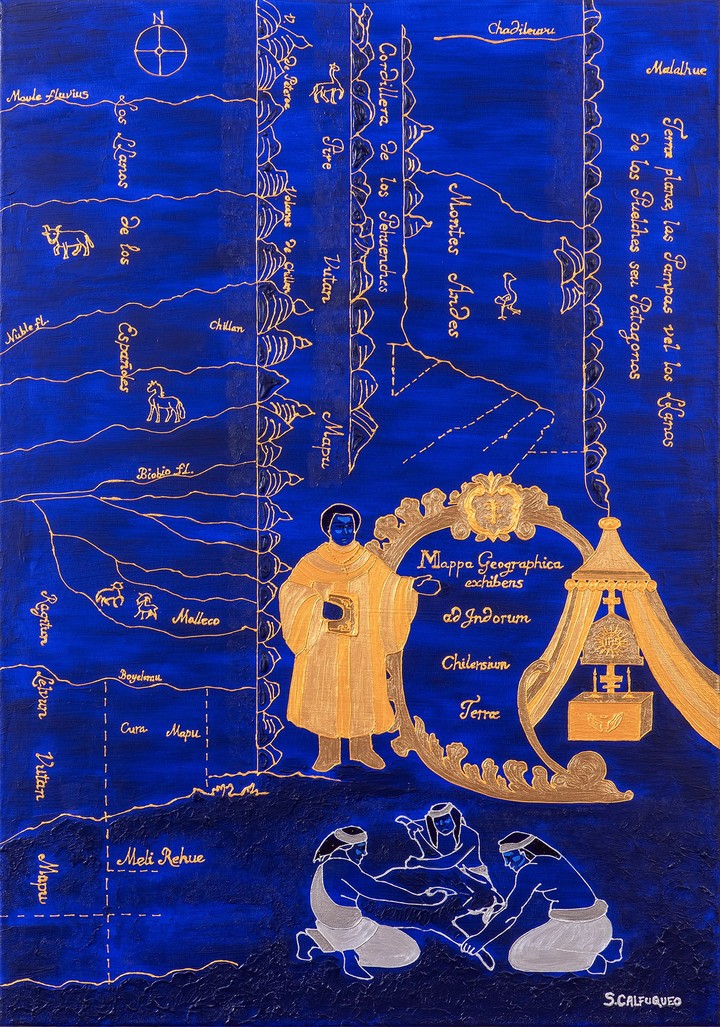 N
Chadileuvu
Malalhue
Maule fluvius
Los Llanos de los Españoles
Pire Vutan Mapu
Cordillera de los Pehuenches
Montes Andes
Terræ planæ, las Pampas vel los Llanos
de los Puelches seu Patagonos
de Peteroa
Volcanes de Chillan
Nuble fl.
Chillan
Biobio fl.
Malleco
Lelvun Vutan Mapu
Cura Mapu
Meli Rehue
Mappa Geographica
exhibens
ad Indorum
Chilensium
Terræ
IHS
S.CALFUQUEO